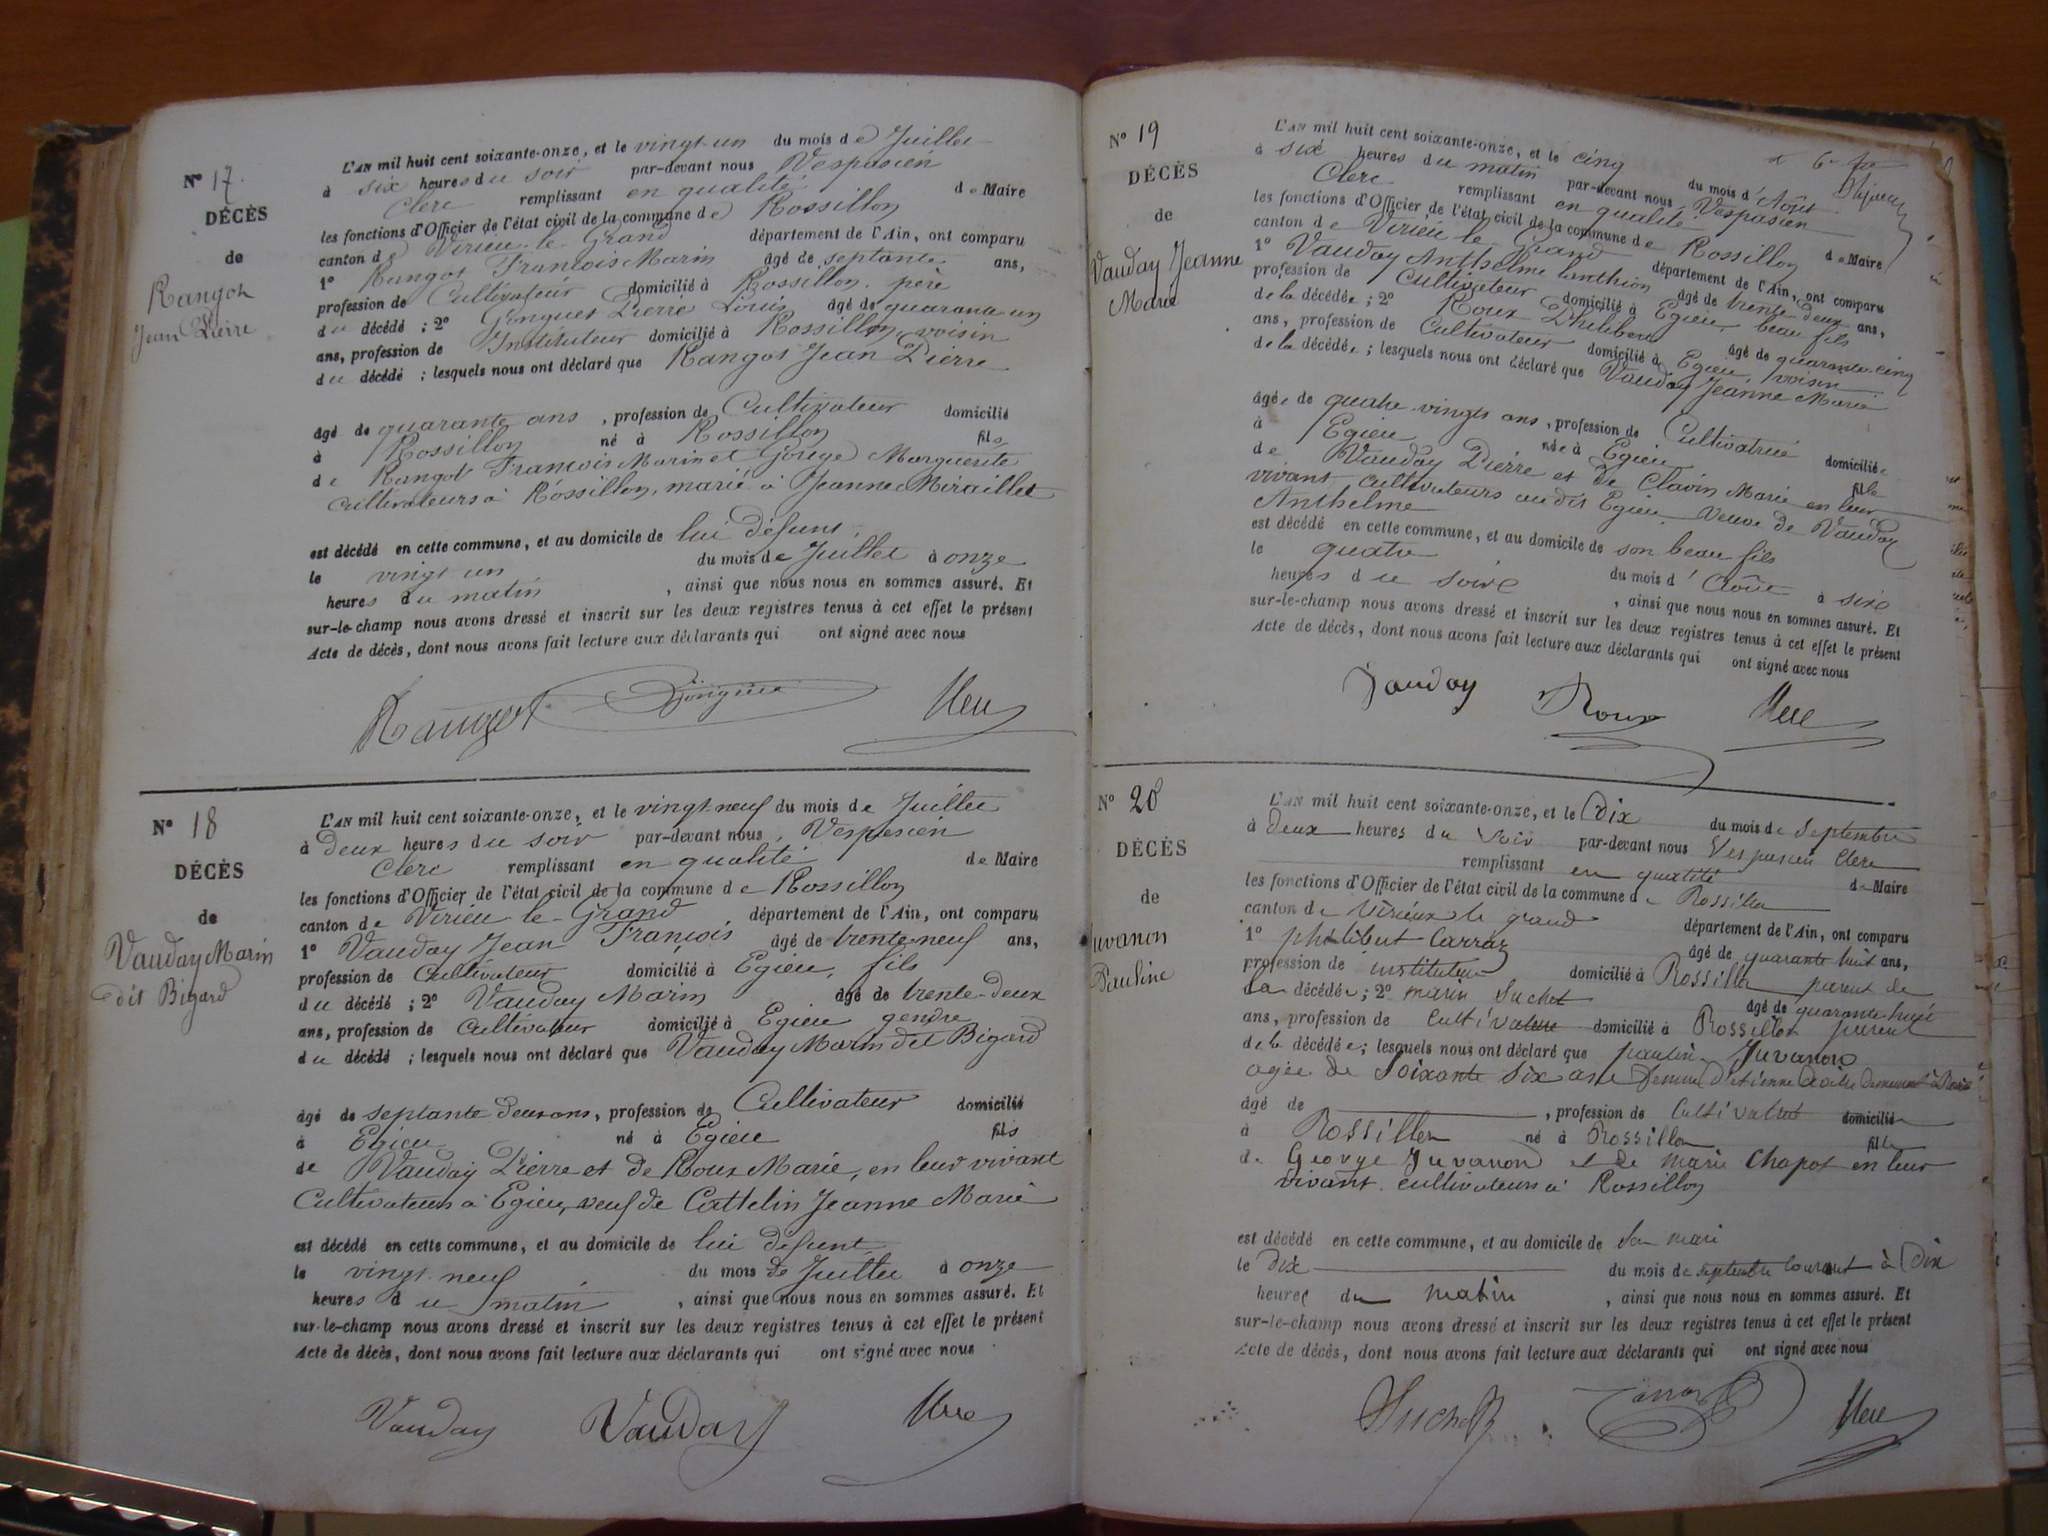 N° 17
DÉCÈS
de
Rangot
Jean Pierre
L'AN mil huit cent soixante-onze, et le vingt-un du mois de Juillet
à six heures du soir par-devant nous Vespasien
Clerc remplissant en qualité de Maire
les fonctions d'Officier de l'état civil de la commune de Rossillon
canton de Virieu-le-Grand département de l'Ain, ont comparu
1° Rangot François Marin âgé de septante ans,
profession de Cultivateur domicilié à Rossillon, père
du décédé ; 2° Pierre Louis âgé de quarante un
ans, profession de Instituteur domicilié à Rossillon, voisin
du décédé ; lesquels nous ont déclaré que Rangot Jean Pierre
âgé de quarante ans, profession de Cultivateur domicilié
à Rossillon né à Rossillon fils
de Rangot François Marin et Marguerite
cultivateurs à Rossillon, marié à Jeanne Miraillet
est décédé en cette commune, et au domicile de lui défunt
le vingt un du mois de Juillet à onze
heures du matin, ainsi que nous nous en sommes assuré. Et
sur-le-champ nous avons dressé et inscrit sur les deux registres tenus à cet effet le présent
Acte de décès, dont nous avons fait lecture aux déclarants qui ont signé avec nous
Rangot
N° 18
DÉCÈS
de
Vauday Marin
dit Bigard
L'AN mil huit cent soixante-onze, et le vingt-neuf du mois de Juillet
à deux heures du soir par-devant nous Vespasien
Clerc remplissant en qualité de Maire
les fonctions d'Officier de l'état civil de la commune de Rossillon
canton de Virieu-le-Grand département de l'Ain, ont comparu
1° Vauday Jean François âgé de trente-neuf ans,
profession de Cultivateur domicilié à Egieu, fils
du décédé ; 2° Vauday Marin âgé de trente-deux
ans, profession de cultivateur domicilié à Egieu gendre
du décédé ; lesquels nous ont déclaré que Vauday Marin dit Bigard
âgé de septante deux ans, profession de Cultivateur domicilié
à Egieu né à Egieu fils
de Vauday Pierre et de Roux Marie, en leur vivant
Cultivateurs à Egieu, veuf de Cattelin Jeanne Marie
est décédé en cette commune, et au domicile de lui défunt
le vingt-neuf du mois de Juillet à onze
heures du matin, ainsi que nous nous en sommes assuré. Et
sur-le-champ nous avons dressé et inscrit sur les deux registres tenus à cet effet le présent
Acte de décès, dont nous avons fait lecture aux déclarants qui ont signé avec nous
Vauday Vauday
N° 19
DÉCÈS
de
Vauday Jeanne
Marie
L'AN mil huit cent soixante-onze, et le cinq du mois d'Août
à six heures du matin par-devant nous Vespasien
Clerc remplissant en qualité de Maire
les fonctions d'Officier de l'état civil de la commune de Rossillon
canton de Virieu le Grand département de l'Ain, ont comparu
1° Vauday Anthelme âgé de trente-deux ans,
profession de Cultivateur domicilié à Egieu, beau fils
de la décédée ; 2° Roux Philibert âgé de quarante-cinq
ans, profession de Cultivateur domicilié à Egieu, voisin
de la décédée ; lesquels nous ont déclaré que Vauday Jeanne Marie
âgée de quatre-vingts ans, profession de Cultivatrice domiciliée
à Egieu née à Egieu fille
de Vauday Pierre et de Clavin Marie en leur
vivant cultivateurs audit Egieu, veuve de Vauday
Anthelme
est décédé en cette commune, et au domicile de son beau fils
le quatre du mois d'Août à six
heures du soir, ainsi que nous nous en sommes assuré. Et
sur-le-champ nous avons dressé et inscrit sur les deux registres tenus à cet effet le présent
Acte de décès, dont nous avons fait lecture aux déclarants qui ont signé avec nous
Vauday Roux
N° 20
DÉCÈS
de
Juvanon
Pauline
L'AN mil huit cent soixante-onze, et le Dix du mois de Septembre
à deux heures du soir par-devant nous Vespasien Clerc
remplissant en qualité de Maire
les fonctions d'Officier de l'état civil de la commune de Rossillon
canton de Virieux le grand département de l'Ain, ont comparu
1° philibert Carraz âgé de quarante huit ans,
profession de instituteur domicilié à Rossillon parent de
la décédée ; 2° marin Suchet âgé de quarante-huit
ans, profession de Cultivateur domicilié à Rossillon parent
de la décédée ; lesquels nous ont déclaré que pauline Juvanon
agée de Soixante six ans femme d'etienne
âgé de, profession de Cultivatrice domiciliée
à Rossillon né à Rossillon fille
de George Juvanon et de marie Chapot en leur
vivant cultivateurs à Rossillon
est décédé en cette commune, et au domicile de son mari
le Dix du mois de septembre courant à Dix
heures du matin, ainsi que nous nous en sommes assuré. Et
sur-le-champ nous avons dressé et inscrit sur les deux registres tenus à cet effet le présent
Acte de décès, dont nous avons fait lecture aux déclarants qui ont signé avec nous
Suchet